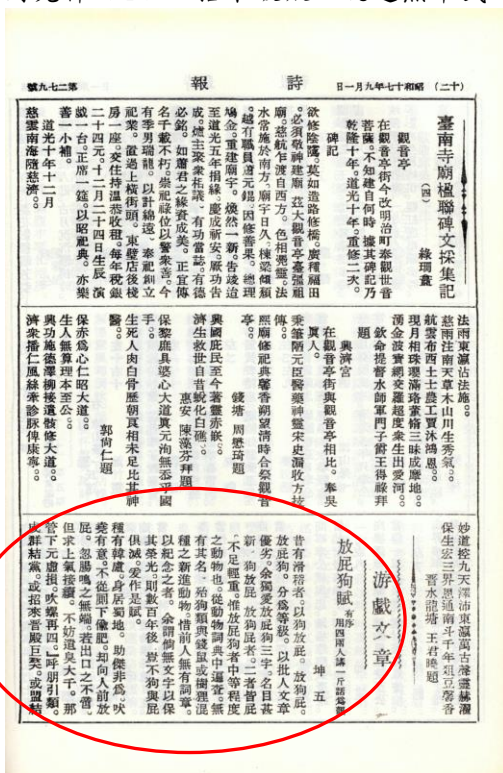 （二十） 昭和十七年九月一日
詩報
第二七九號
臺南寺廟楹聯碑文採集記
（四） 綠珊盦
觀音亭
在觀音亭街今改明治町奉觀世音
菩薩。不知建自何時。據其碑記乃
乾隆十年。道光十年。重修二次。
碑記
欲修陰騭。莫如造路修橋。廣種福田
。必須敬神建廟。茲大觀音亭臺疆祖
廟。慈航乍渡自西方。色相憑靈。法
水常施於南方。廟宇日久。棟梁傾頹
。越有職員蕭元錕。因修善果。總理
鳩金。重建廟宇。煥然一新。告竣迨
至道光元年捐緣。慶成祈安。厥功告
成。爐主眾眾祐議。有功當誌。有德
必銘。如蕭君之緣資成美。正宜傳
名千載不朽。崇祀祿位以誓眾善。今
有季男瑞龍。以計綿遠。奉祀創立
祀業。置過上橫街頭。東壁店後棧
房一座。交住持溫恭收租。每年稅銀
二十四元。十二月二十四日生辰 演
戲一台。正席一筵。以昭祀典。亦樂
善一小補。
道光十年十二月
慈雲南海隨慈濟。。
法雨東瀛沾法施。。
慈雨注南天草木山川生秀氣。。
航雲布西土士農工賈沐鴻恩。。
現月相珠瓔滿珞葉脩三昧成摩地。
湧金波寶網交羅超度眾生出愛河。。
欽命提督水師軍門子爵王得祿拜
題
興濟宮
在觀音亭街與觀音亭相比。奉吳
真人。
秉筆陋元臣醫藥神靈宋史漏收方技
熙廟修祀典馨香朔望清時合祭觀音
亭。
錢塘 周懋琦題
興國庇民至今著靈赤嵌。。
濟生救世自昔蛻化白礁。。
惠安 陳藻芬拜題
保黎庶具婆心大道真元洵無忝乎國
手。
生死人肉白骨歷朝真相未足比並神
醫。
郭尚仁題
保赤為心仁昭大道。。
生人無算理本至公。。
興功施德澤柳接遺骸修大道。。
濟眾播仁風絲牽診脉俾康寧。。
妙道控九天澤沛東瀛萬古聲靈赫濯
保生宏三界恩通南斗千年俎豆馨香
晋水龍塘 王君曉題
游戲文章
放屁狗賦 有序
坤五
昔有滑稽者。以狗放屁。放狗屁。
放屁狗。分為等級。以批人文章
優劣。余獨愛放屁狗三字。名目甚
新。狗放屁。放狗屁者。二者皆屁
。不足輕重。惟放屁狗者。中等程度
之動物也。從動物詞典中遍查。無
有其名。殆狗類與錢鼠或樹狸混
種之新進動物。惜前人無有詞章。
以紀念之者。余謂倘無文字以保
其榮光。則數百年後。豈不狗與屁
俱滅。爰作是賦。
種有韓盧。身居蜀地。助傑非為。吠
堯有意。不從胯下偸肥。却向人前放
屁。忽腸鳴之無端。若出口之不當。
但求上氣接續。不妨遺臭大千。那
管下元虛損。吹螺再四。呼朋引類。
成群結黨。或招來晋殿巨獒。或盟結